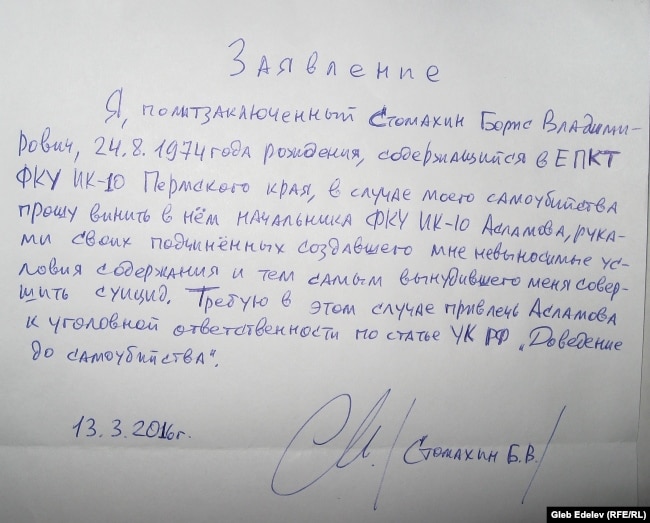 Заявление
Я, политзаключенный Стомахин Борис Владими-
рович, 24.8.1974 года рождения, содержащийся в ЕПКТ
ФКУ ИК-10 Пермского края, в случае моего самоубийства
прошу винить в нём начальника ФКУ ИК-10 Асламова, рука-
ми своих подчинённых создавшего мне невыносимые ус-
ловия содержания и тем самым вынудившего меня совер-
шить суицид. Требую в этом случае привлечь Асламова
к уголовной ответственности по статье УК РФ „Доведение
до самоубийства".
13.3.2016г.
/Стомахин Б.В./
Gleb Edelev (RFE/RL)